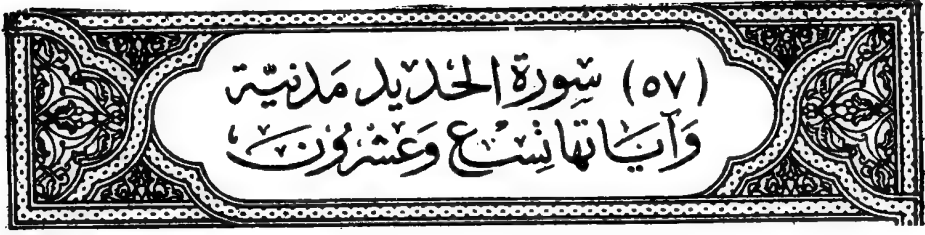 (٥٧) سُورَة الحَديد مَدَنيّة
وَآيَاتها تِسْع وَعشرُونَ